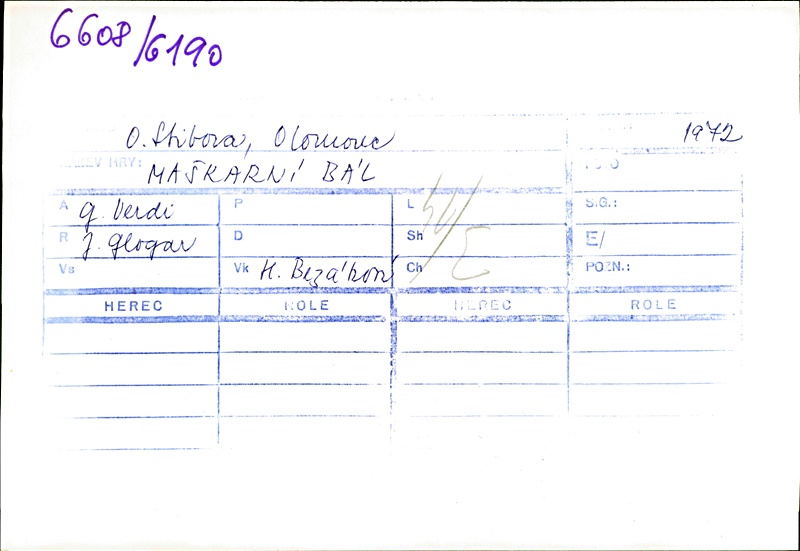 6608/6190
O. Stibora, Olomouc 1972
NÁZEV HRY: MAŠKARNÍ BÁL
A G. Verdi P L S.G.:
R J. Glogar D Sh E/
Vs Vk H. Bezáková Ch POZN.:
HEREC ROLE HEREC ROLE